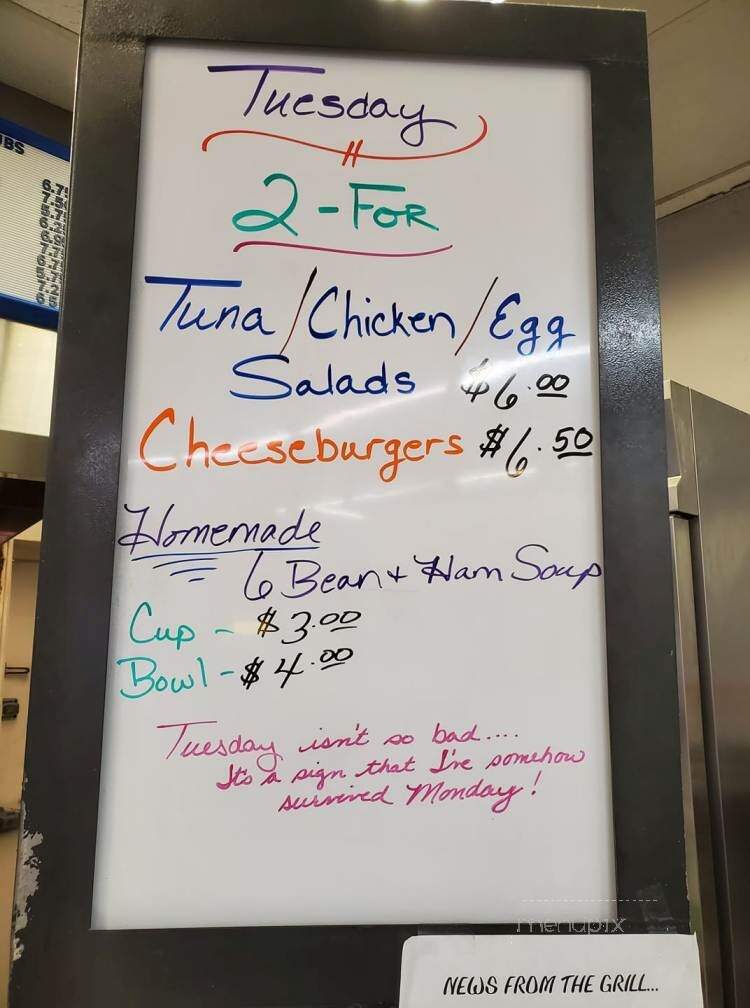 Tuesday
2-FOR
Tuna/Chicken/Egg
Salads $6.00
Cheeseburgers $6.50
Homemade
6 Bean + Ham Soup
Cup - $3.00
Bowl - $4.00
Tuesday isn't so bad....
It's a sign that I've somehow
survived Monday!
menupix
NEWS FROM THE GRILL...